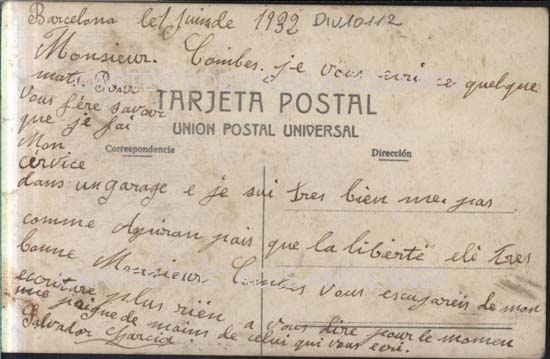 Barcelona le 1 Juin de 1932 DIV10112
Monsieur. Combes. je vous ecri ce quelque
mots. Pour
vous fére savoir
TARJETA POSTAL
que je fai
UNION POSTAL UNIVERSAL
Mon
Correspondencia
Dirección
cérvice
dans un garage e je sui tres bien me pas
comme pais que la liberté elé tres
bonne Monsieur. Combes vous de mon
ecriture plus rién a vous dire pour le momen
une de mains de celui qui vous ecri.
Salvator Garcia